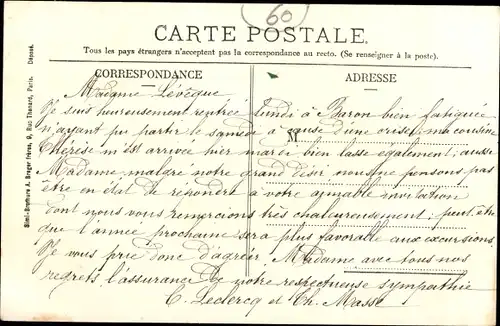 60
CARTE POSTALE.
Tous les pays étrangers n'acceptent pas la correspondance au recto. (Se renseigner à la poste).
CORRESPONDANCE
ADRESSE
Simi-Bromure A. Breger frères, 9, Rue Thénard, Paris. Déposé.
M
Madame Lévêque
Je suis heureusement rentrée lundi à Baron bien fatiguée
n'ayant pu partir le samedi à cause d'une crise, ma cousine
Thérèse n'est arrivée hier mardi bien lasse également; aussi
Madame, malgré notre grand désir nous ne pensons pas
être en état de répondre à votre aimable invitation
dont nous vous remercions très chaleureusement; peut-être
que l'année prochaine sera plus favorable aux excursions.
Je vous prie donc d'agréer, Madame avec tous nos
regrets l'assurance de notre respectueuse sympathie
C. Leclercq et Ch. Masse